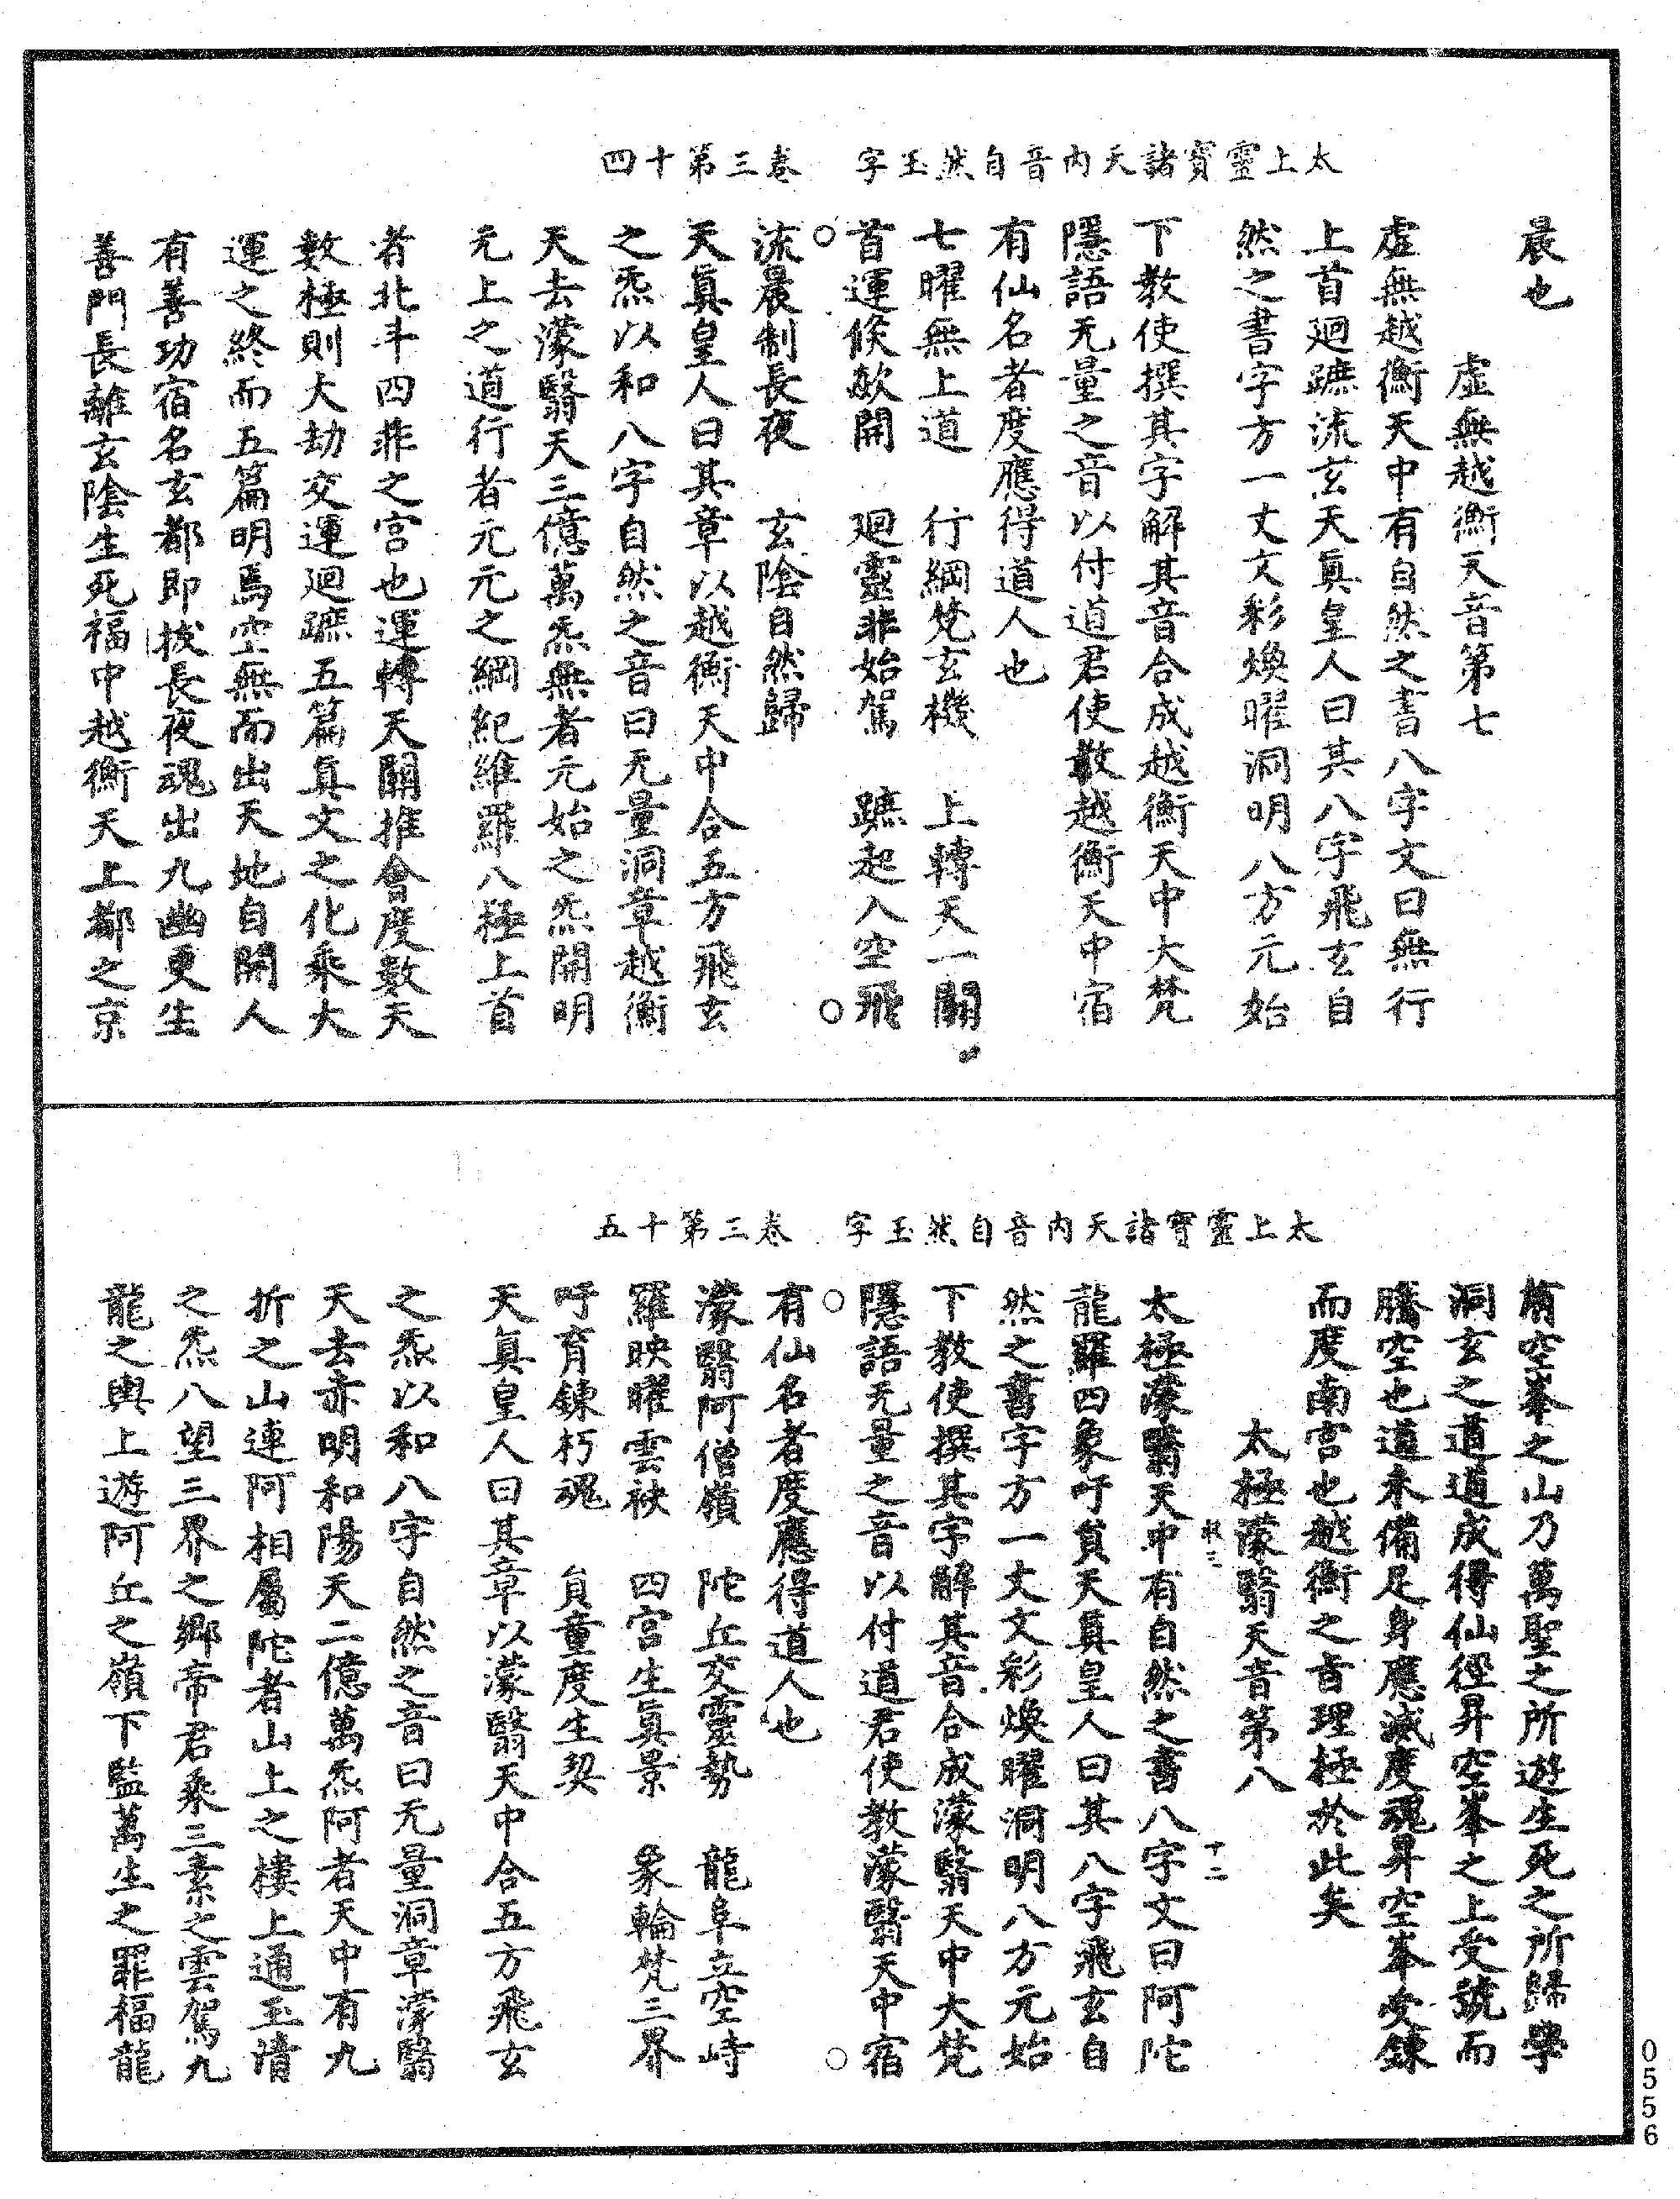 太上靈寶諸天內音自然玉字　卷三第十四
晨也
虛無越衡天音第七
虛無越衡天中有自然之書八字文曰無行
上首廻蹠流玄天真皇人曰其八字飛玄自
然之書字方一丈文彩煥曜洞明八方元始
下教使撰其字解其音合成越衡天中大梵
隱語无量之音以付道君使教越衡天中宿
有仙名者度應得道人也
七曜無上道　行綱梵玄機　上轉天一關
首運候欻開　廻靈非始駕　蹠起入空飛
流晨制長夜　玄陰自然歸
天真皇人曰其章以越衡天中合五方飛玄
之炁以和八字自然之音曰无量洞章越衡
天去濛翳天三億萬炁無者元始之炁開明
无上之道行者元元之綱紀維羅八極上首
者北斗四非之宮也運轉天關推會度數天
數極則大劫交運廻蹠五篇真文之化乘大
運之終而五篇明焉空無而出天地自開人
有善功宿名玄都即拔長夜魂出九幽更生
善門長離玄陰生死福中越衡天上都之京
太上靈寶諸天內音自然玉字　卷三第十五
有空峯之山乃萬聖之所遊生死之所歸學
洞玄之道道成得仙徑昇空峯之上受號而
騰空也道未備足身應滅度魂昇空峯受鍊
而度南宮也越衡之旨理極於此矣
太極濛翳天音第八
太極濛翳天中有自然之書八字文曰阿陀
龍羅四象吁員天真皇人曰其八字飛玄自
然之書字方一丈文彩煥曜洞明八方元始
下教使撰其字解其音合成濛翳天中大梵
隱語无量之音以付道君使教濛翳天中宿
有仙名者度應得道人也
濛翳阿僧嶺　陀丘交靈勢　龍阜立空峙
羅映曜雲袂　四宮生真景　象輪梵三界
吁育鍊朽魂　員童度生契
天真皇人曰其章以濛翳天中合五方飛玄
之炁以和八字自然之音曰无量洞章濛翳
天去赤明和陽天二億萬炁阿者天中有九
折之山連阿相屬陀者山上之樓上通玉清
之炁八望三界之鄉帝君乘三素之雲駕九
龍之輿上遊阿丘之嶺下監萬生之罪福龍
0556